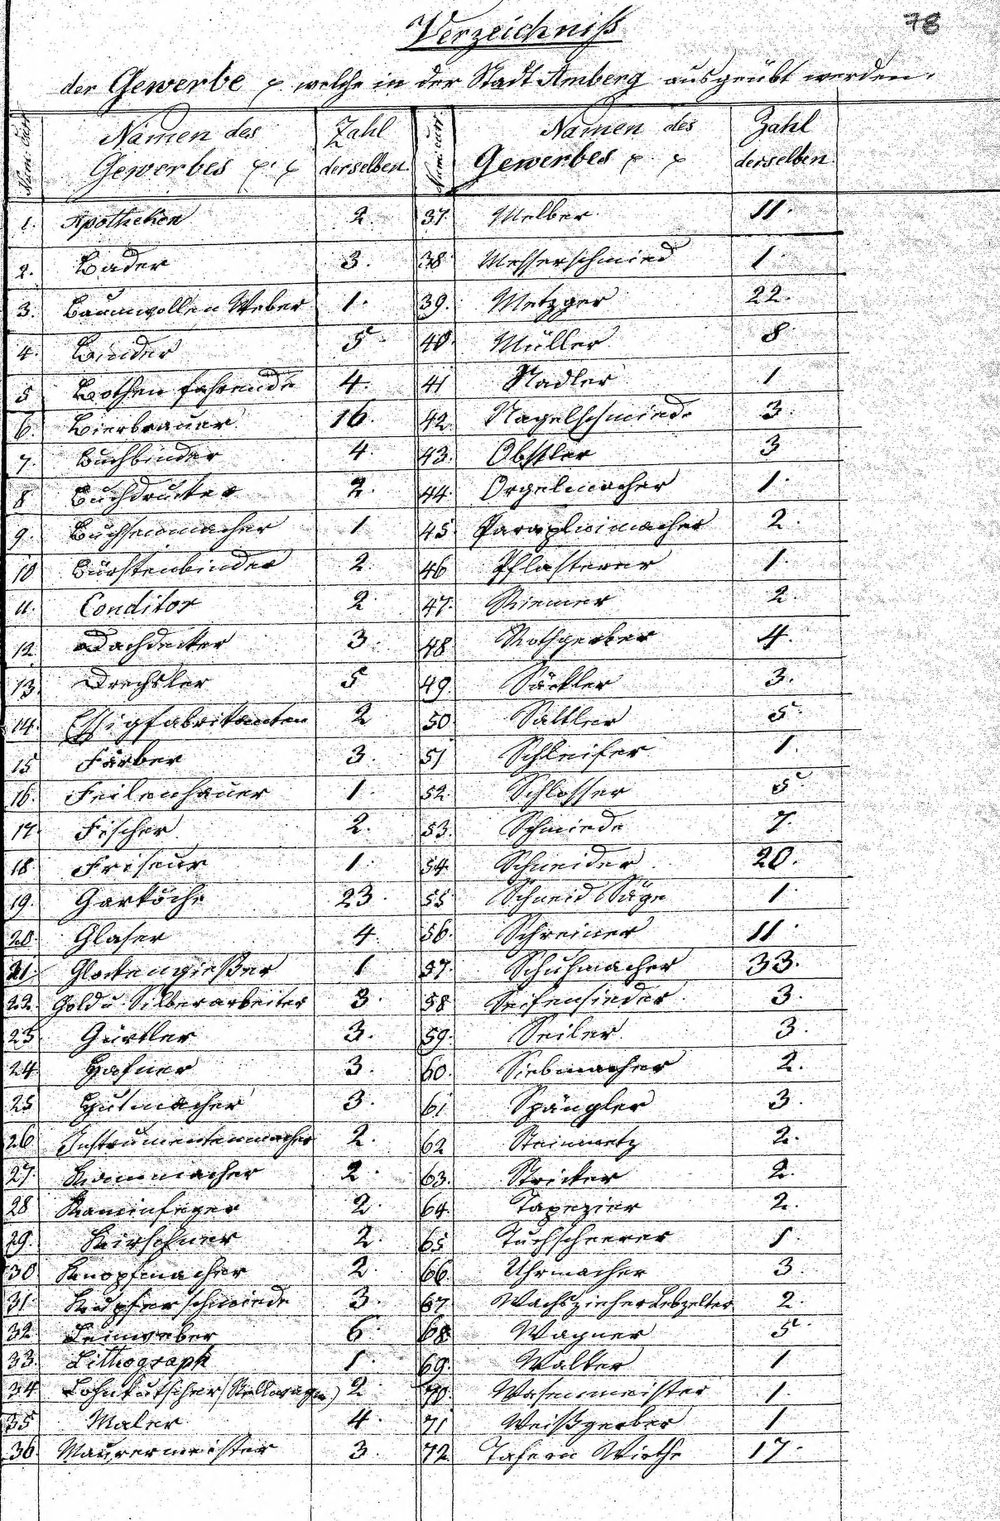 78
Verzeichniß
der Gewerbe p. welche in der Stadt Amberg ausgeübt werden.
Num. Curr. Namen des Gewerbes p. p Zahl derselben.
1. Apotheken 2.
2. Bader 3.
3. Baumwollen Weber 1.
4. Binder 5.
5 Bothen fahrende 4.
6. Bierbrauer 16.
7. Buchbinder 4.
8 Buchdrucker 2.
9. Buchsenmacher 1.
10 Bürstenbinder 2.
11. Conditor 2
12 Dachdecker 3.
13. Drechsler 5
14. Essigfabrikanten 2
15 Färber 3.
16. Feilenhauer 1.
17. Fischer 2.
18. Friseur 1.
19. Garköche 23.
20. Glaser 4.
21. Glockengießer 1
22. Gold u. Silberarbeiter 3.
23. Gürtler 3.
24. Hafner 3.
25 Hutmacher 3.
26 Instrumentenmacher 2.
27. Kammmacher 2.
28 Kaminfeger 2.
29. Kirschner 2.
30 Knopfmacher 2
31. Kupferschmiede 3.
32 Leinweber 6.
33. Lithograph 1.
34 Lohnkutscher (Stellwagen) 2
35 Maler 4.
36 Maurermeister 3.
Num. curr. Namen des Gewerbes p. p Zahl derselben
37. Melber 11.
38 Messerschmied 1.
39. Metzger 22.
40. Müller 8
41 Nadler 1
42 Nagelschmiede 3.
43. Obstler 3
44. Orgelmacher 1.
45. Parapluimacher 2.
46 Pflasterer 1.
47. Riemer 2.
48 Rothgerber 4.
49. Säckler 3.
50 Sattler 5.
51 Schleifer 1.
52. Schlosser 5
53. Schmiede 7.
54. Schneider 20.
55 Schneid Säge 1.
56. Schreiner 11.
57. Schuhmacher 33.
58 Seifensieder 3.
59. Seiler 3.
60. Siebmacher 2.
61 Spängler 3.
62 Steinmetz 2.
63. Stricker 2.
64. Tapezier 2.
65 Tuchscheerer 1
66. Uhrmacher 3.
67. Wachszieher Lebzelter 2.
68. Wagner 5
69. Walker 1
70. Wasenmeister 1.
71 Weißgerber 1
72. Tafern Wirthe 17.